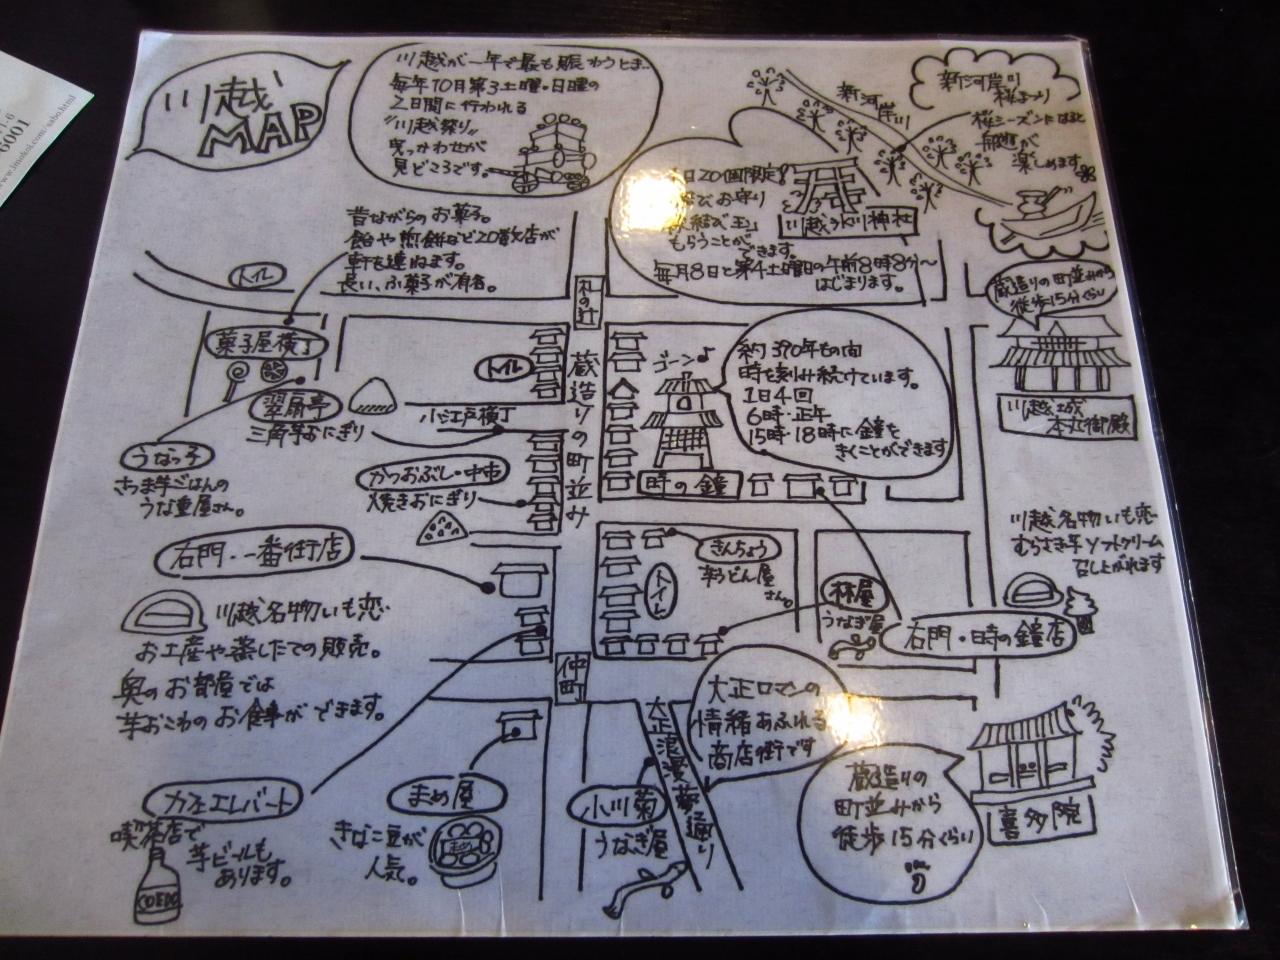 川越
MAP
川越が一年で最も賑わうとき…
毎年10月第3土曜・日曜の
2日間に行われる
"川越祭り"
曳っかわせが
見どころです。
新河岸川
新河岸川
桜まつり
桜シーズンになると
船遊が
楽しめます。
日20個限定!
びお守り
結び玉」
もらうことが
できます。
毎月8日と第4土曜日の午前8時8分～
はじまります。
川越氷川神社
昔ながらのお菓子。
飴や煎餅など20数店が
軒を連ねます。
長い、ふ菓子が有名。
トイレ
札の辻
蔵造りの町並みから
徒歩15分くらい
川越城
本丸御殿
菓子屋横丁
翠扇亭
三角芋おにぎり
トイレ
小江戸横丁
蔵造りの町並み
ゴーン♪
時の鐘
約390年もの間
時を刻み続けています。
1日4回
6時・正午
15時・18時に鐘を
きくことができます
うなっ子
さつま芋ごはんの
うな重屋さん。
かつおぶし・中市
焼きおにぎり
右門・一番街店
川越名物いも恋
お土産や蒸したての販売。
奥のお部屋では
芋おこわのお食事ができます。
きんちょう
芋うどん屋
さん。
トイレ
林屋
うなぎ屋
川越名物いも恋
むらさき芋ソフトクリーム
召し上がれます
右門・時の鐘店
仲町
大正浪漫夢通り
大正ロマンの
情緒あふれる
商店街です
カフェエレバート
喫茶店で
芋ビールも
あります。
COEDO
まめ屋
きなこ豆が
人気。
まめ
小川菊
うなぎ屋
蔵造りの
町並みから
徒歩15分くらい
喜多院
6001